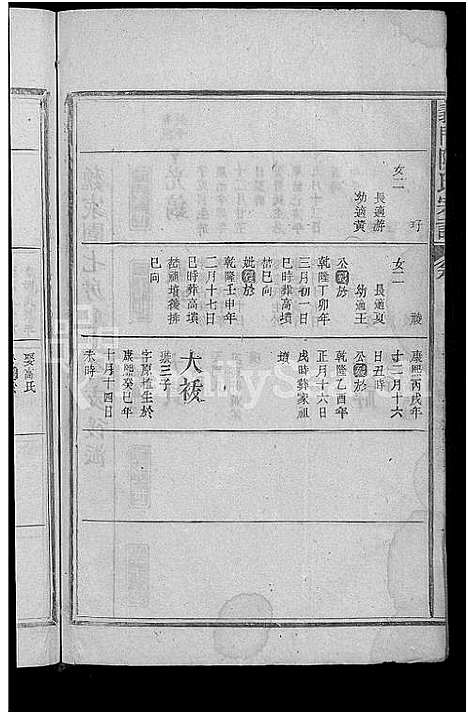 義門陳氏宗譜
玗
女二
長適游
幼適黃
陵
女二
長適夏
幼適王
公歿於
乾隆丁卯年
三月初一日
巳時葬高墳
巳向
妣歿於
乾隆壬申年
二月十七日
巳時葬高墳
後排
巳向
康熙丙戌年
十二月十六
日丑時
公歿於
乾隆乙酉年
正月十六日
戌時葬家祖
墳
大
三子
字原植生於
康熙癸巳年
十月十四日
未時
娶高氏
FamilySearch